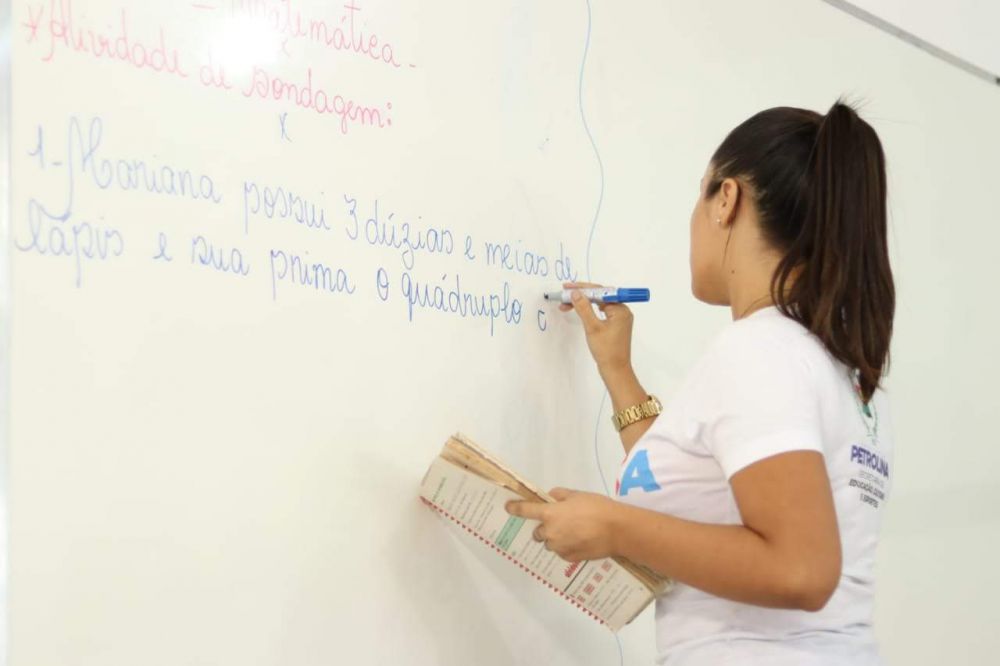 Matemática -
* Atividade de Sondagem:
x
1- Mariana possui 3 dúzias e meias de
lápis e sua prima o quádruplo c
A
PETROLINA
SECRETARIA DE
EDUCAÇÃO, CULTURA
E ESPORTES